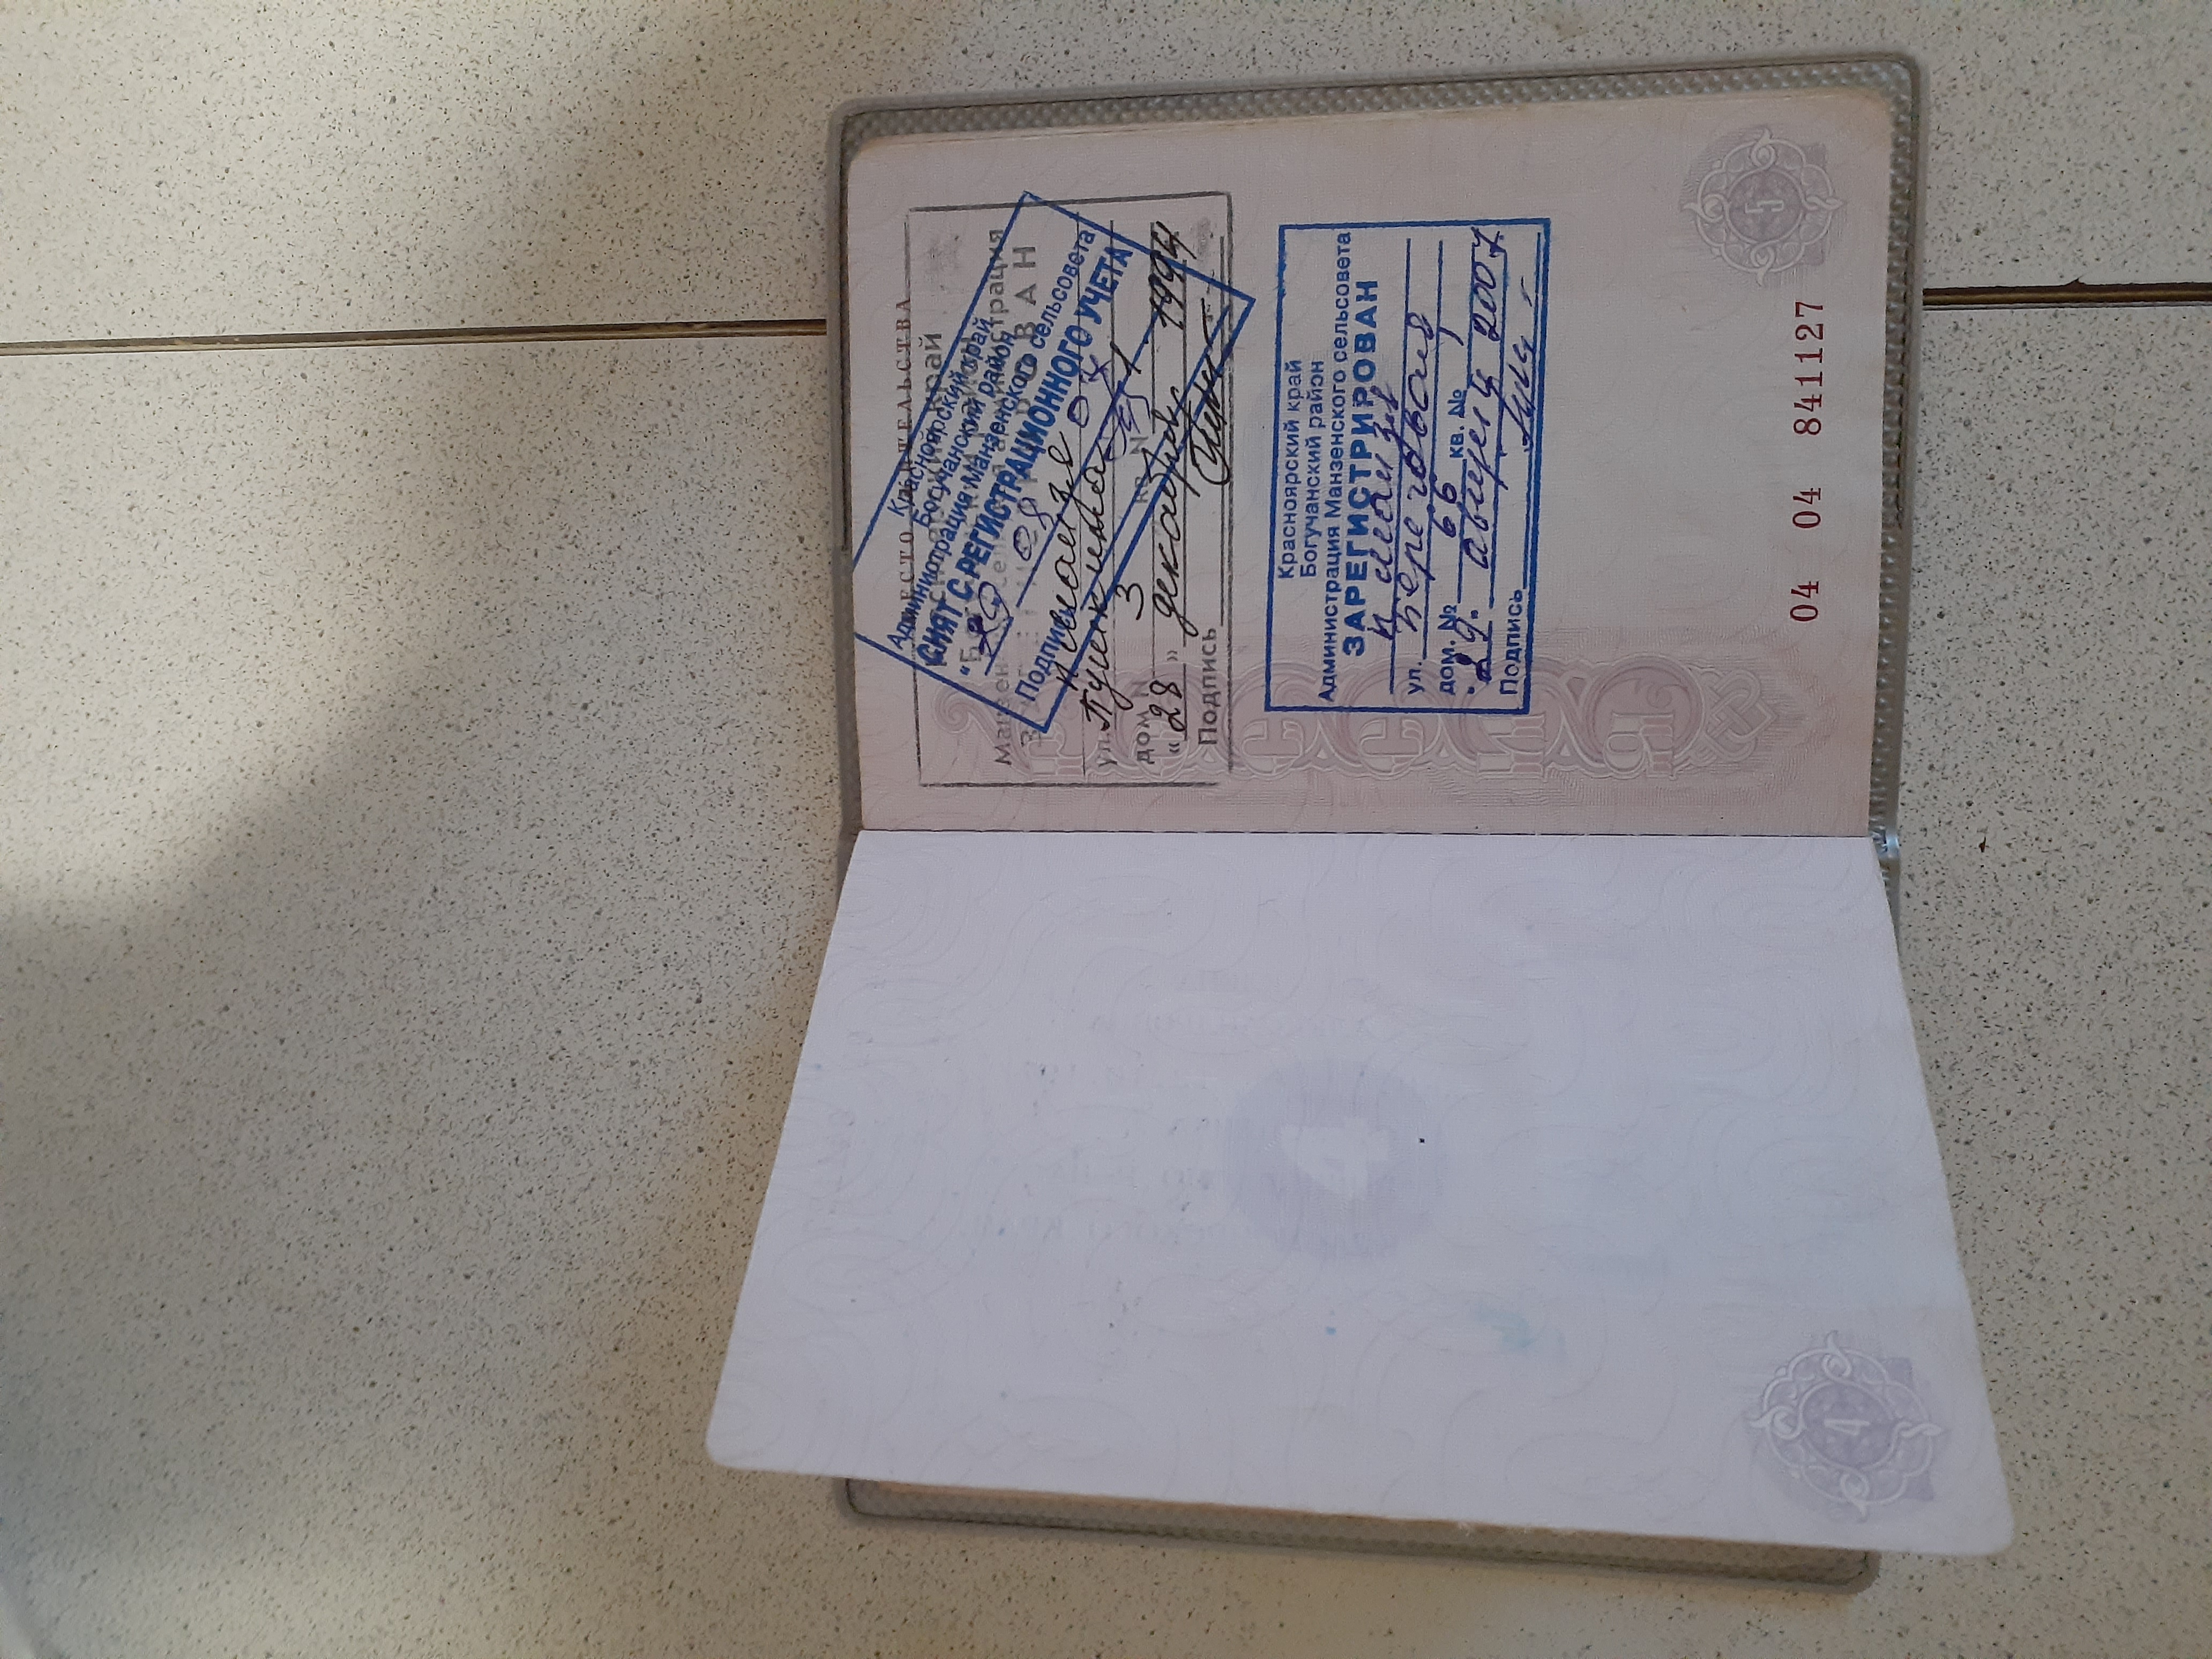 4
МЕСТО ЖИТЕЛЬСТВА
Красноярский край
Богучанский район
Манзенская сельская администрация
ЗАРЕГИСТРИРОВАН
п Манзя
ул. Пушкина
дом N 3 кв. N 1
"28" декабря 1994
Подпись
Красноярский край
Богучанский район
Администрация Манзенского сельсовета
СНЯТ С РЕГИСТРАЦИОННОГО УЧЕТА
"29" 08 07
Подпись
Красноярский край
Богучанский район
Администрация Манзенского сельсовета
ЗАРЕГИСТРИРОВАН
п Манзя
ул. Береговая
дом. № 66 кв. № 1
"29" августа 2007
Подпись
04 04 841127
5